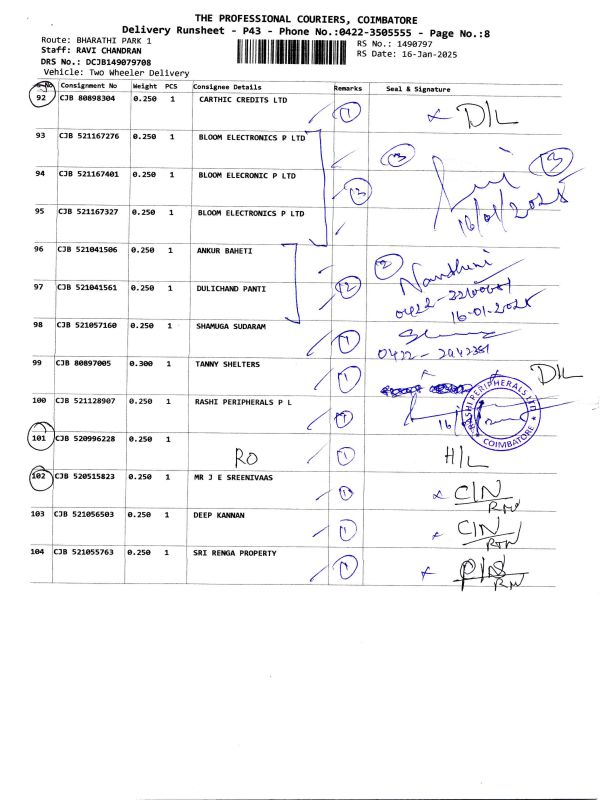 THE PROFESSIONAL COURIERS, COIMBATORE
Delivery Runsheet - P43 - Phone No.:0422-3505555 - Page No.:8
Route: BHARATHI PARK 1
RS No.: 1490797
Staff: RAVI CHANDRAN
RS Date: 16-Jan-2025
DRS No.: DCJB149079708
Vehicle: Two Wheeler Delivery
S.No Consignment No Weight PCS Consignee Details Remarks Seal & Signature
92 CJB 80898304 0.250 1 CARTHIC CREDITS LTD 1 D/L
93 CJB 521167276 0.250 1 BLOOM ELECTRONICS P LTD 3 3
94 CJB 521167401 0.250 1 BLOOM ELECRONIC P LTD 3
16/01/2025
95 CJB 521167327 0.250 1 BLOOM ELECTRONICS P LTD
96 CJB 521041506 0.250 1 ANKUR BAHETI 2 Nandhini
97 CJB 521041561 0.250 1 DULICHAND PANTI 2
16-01-2025
98 CJB 521057160 0.250 1 SHAMUGA SUDARAM 1
99 CJB 80897005 0.300 1 TANNY SHELTERS 1 D/L
100 CJB 521128907 0.250 1 RASHI PERIPHERALS P L 1
RASHI PERIPHERALS LTD
COIMBATORE
101 CJB 520996228 0.250 1 RO 1 H/L
102 CJB 520515823 0.250 1 MR J E SREENIVAAS 1 C/N
103 CJB 521056503 0.250 1 DEEP KANNAN 1 C/N
104 CJB 521055763 0.250 1 SRI RENGA PROPERTY 1